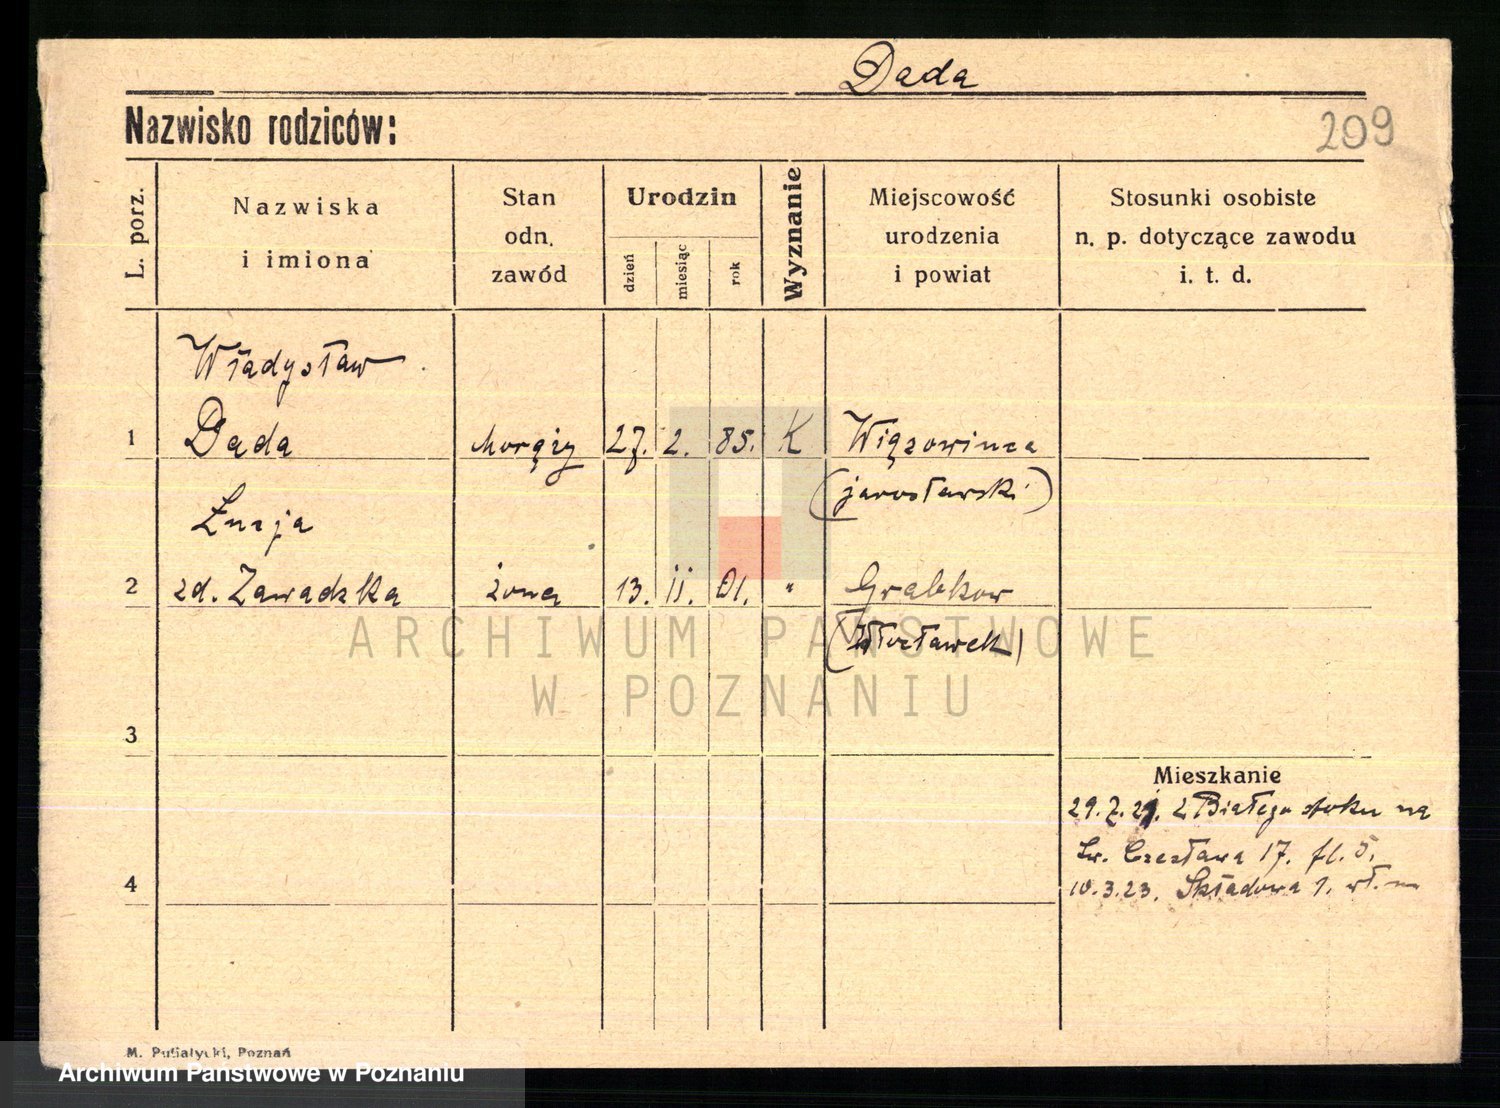 Dada
Nazwisko rodziców:
209
L. porz.
Nazwiska
i imiona
Stan
odn.
zawód
Urodzin
dzień
miesiąc
rok
Wyznanie
Miejscowość
urodzenia
i powiat
Stosunki osobiste
n. p. dotyczące zawodu
i. t. d.
Władysław
1 Dada 27. 2. 85. K Wiązownica
(jarosławski)
Łucja
2 zd. Zawadzka żona 13. II. 01. " Grabkow
(Włocławek)
ARCHIWUM PAŃSTWOWE
W POZNANIU
3
Mieszkanie
29.7.21. z Białegostoku na
Św. Czesława 17. fl. 5.
4 10.3.23. Składowa 1. wł.
M. Pusiatycki, Poznań
Archiwum Państwowe w Poznaniu